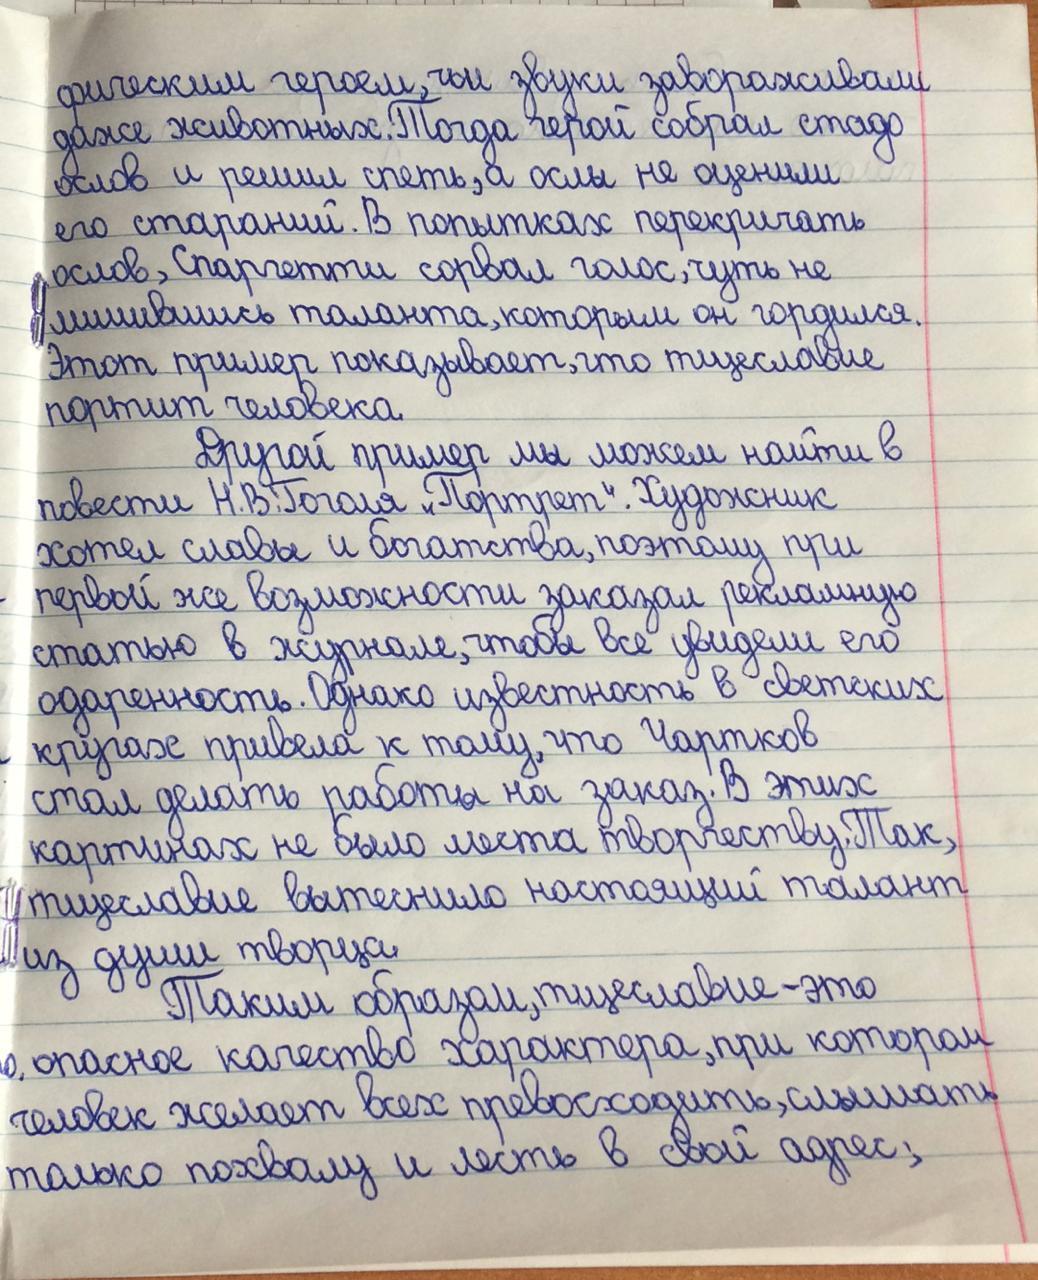 фическим героем, чьи звуки завораживали
даже животных. Тогда герой собрал стадо
ослов и решил спеть, а ослы не оценили
его стараний. В попытках перекричать
ослов, Спаргетти сорвал голос, чуть не
лишившись таланта, которым он гордился.
Этот пример показывает, что тщеславие
портит человека.
Другой пример мы можем найти в
повести Н.В.Гоголя „Портрет“. Художник
хотел славы и богатства, поэтому при
первой же возможности заказал рекламную
статью в журнале, чтобы все увидели его
одаренность. Однако известность в светских
кругах привела к тому, что Чартков
стал делать работы на заказ. В этих
картинах не было места творчеству. Так,
тщеславие вытеснило настоящий талант
из души творца.
Таким образом, тщеславие - это
опасное качество характера, при котором
человек желает всех превосходить, слышать
только похвалу и лесть в свой адрес;